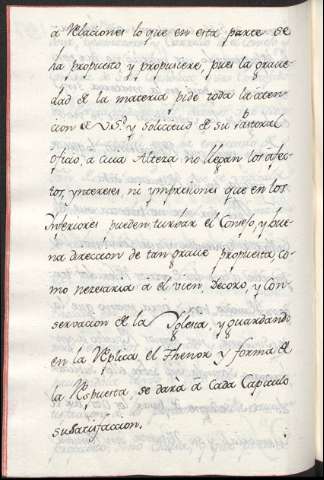 à Relaciones lo que en esta parte se
ha propuesto y propusiere, pues la grave-
dad de la materia pide toda la aten-
cion de V.S.ª y solicitud de su Pastoral
oficio, à cuia Alteza no llegan los afec-
tos, yntereses, ni ympresiones que en los
Inferiores pueden turbar el Consejo, y bue-
na direccion de tan grave propuesta, co-
mo nezesaria à el vien, Decoro, y Con-
servacion de la Yglesia, y guardando
en la Replica el Thenor y forma de
la Respuesta se darà à Cada Capitulo
su satisfaccion.